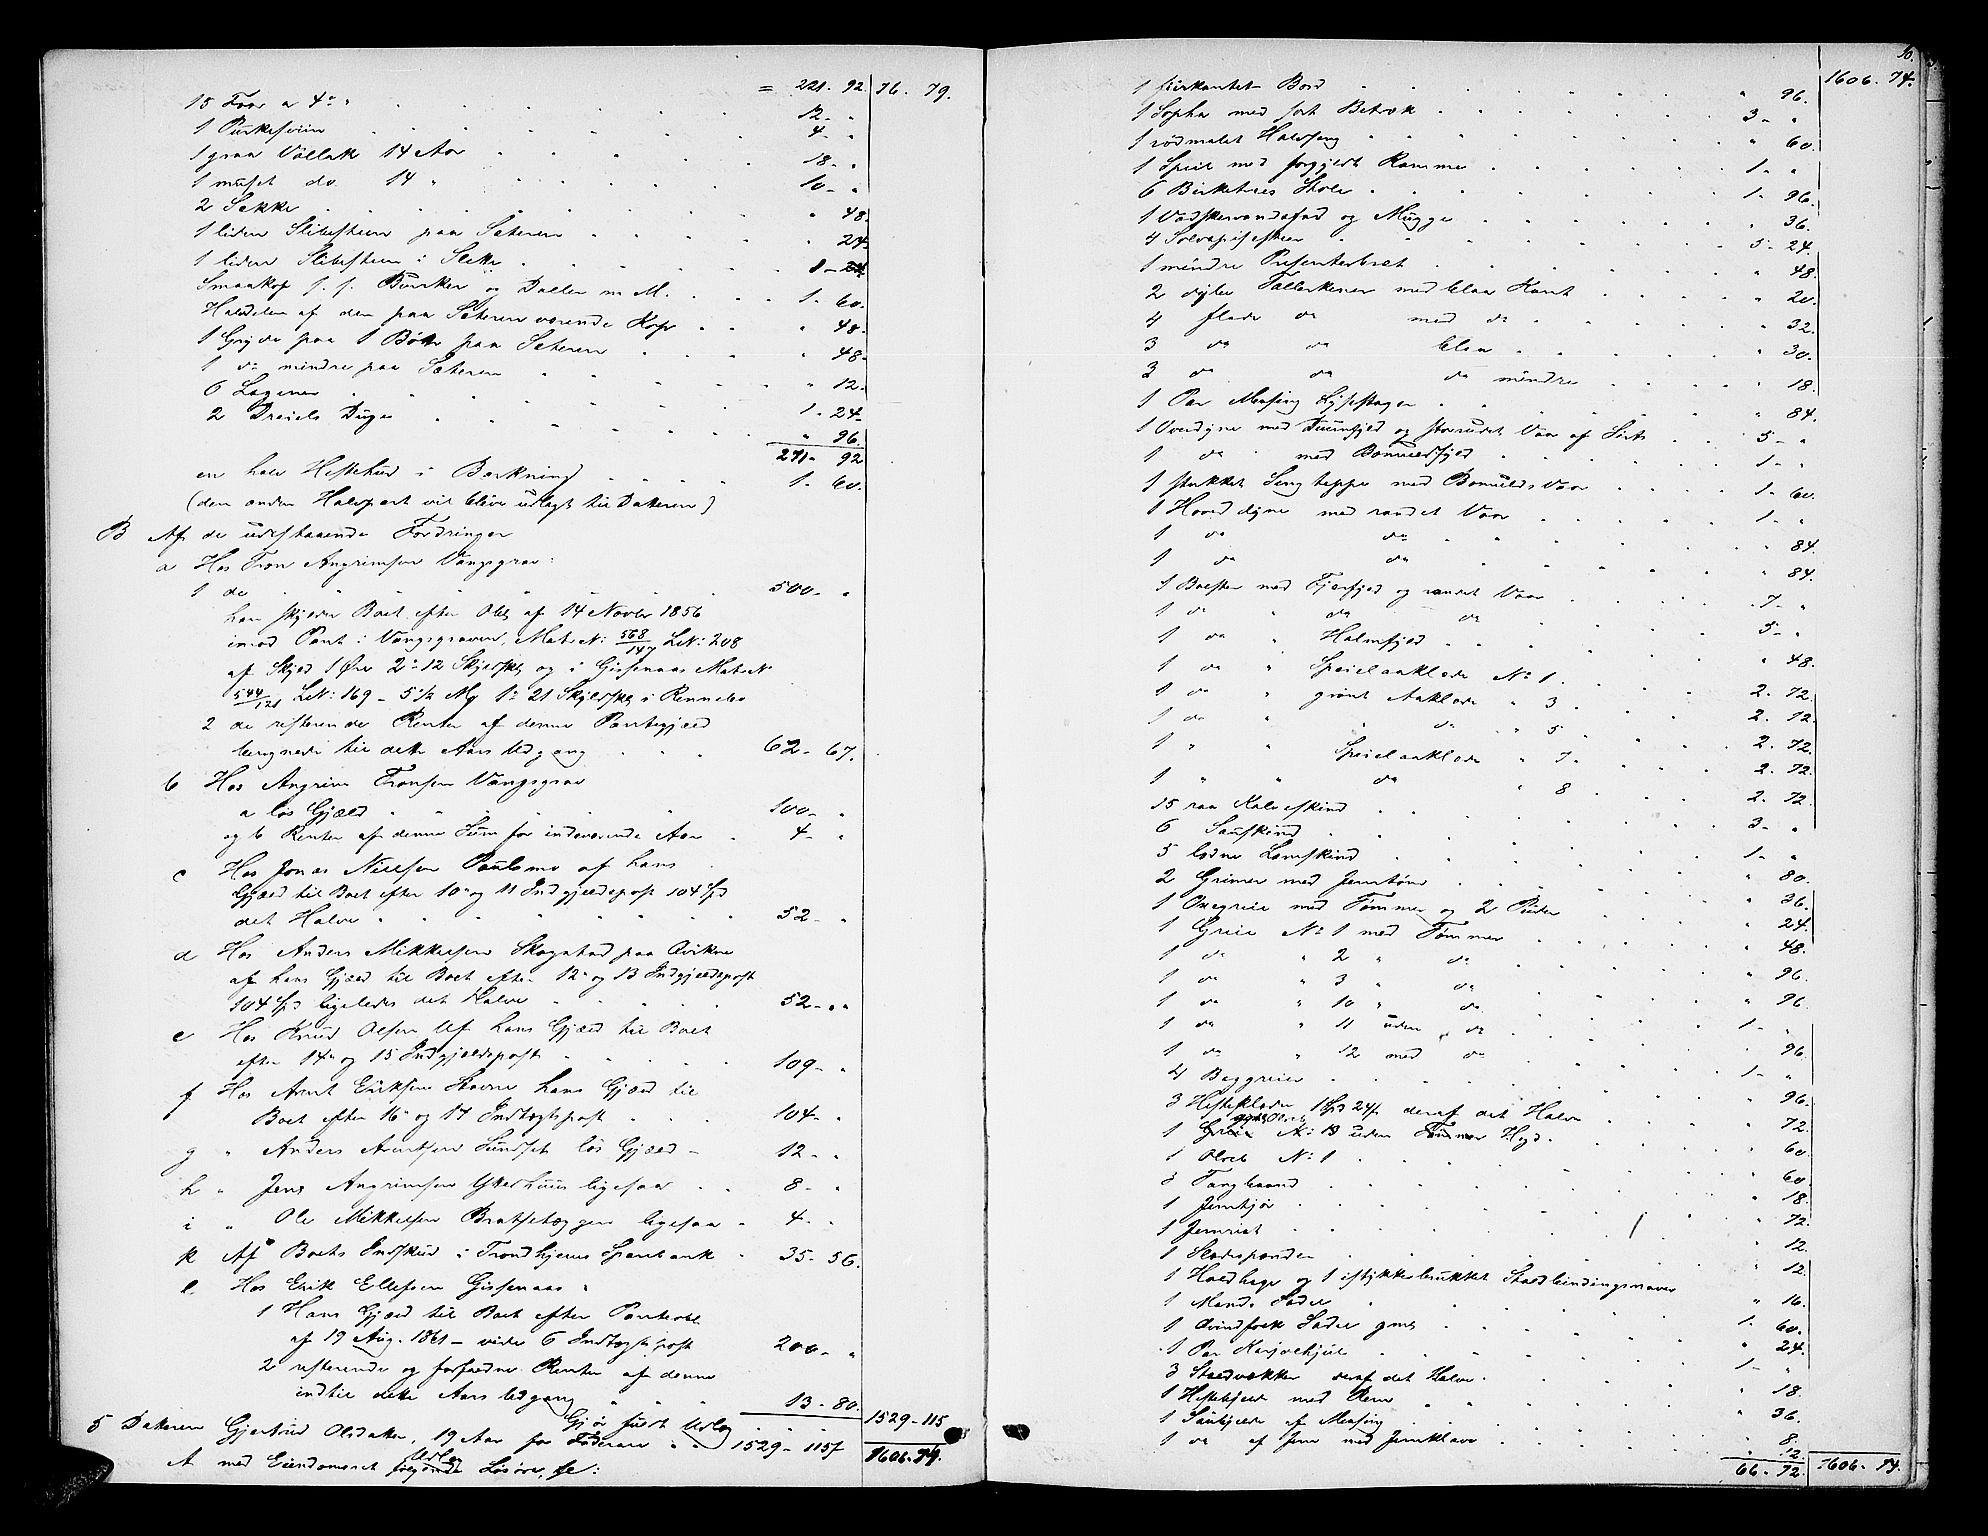 = 221. 92. 76. 79.
15 Faar a 4" " 12 - "
1 Purkesviin 4 - "
1 graa Vallak 14 Aar 18 - "
1 muset do 14 " 10 - "
2 Sække " 48.
1 liden Slibesteen paa Sæteren " 24.
1 liden Slibesteen i
Smaakop s. s. Bunker og Daller m M. 1 - 60.
Halvdelen af den paa Sæteren værende Kop " 48.
1 Gryde paa 1 Bøtte paa Sæteren " 48.
1 do mindre paa Sæteren " 12.
6 Lagener 1 - 24.
2 Dreiels Duge " 96.
271 - 92
en halv Hestehud i Barkning 1 - 60.
(den anden Halvpart vil blive udlagt til Datteren)
B Af de udestaaende Fordringer
a Hos Tron Angrimsen Vangsgrav:
1 de 500 - "
han skylder Boet efter Obl af 14 Novbr 1856
imod Pant i Vangsgraven, Mats N: 568/147 L.N: 208
af Skyld 1 Ört 2" 12 Skjelskl og i Gissenaas Mats N
544/121 L.N: 169 - 5 1/2 Mg 1" 21 Skyldskl i Rennebo
2 de resterende Renter af denne Pantegjæld
beregnede til dette Aars Udgang 62 - 67.
b Hos Angrim Tronsen Vangsgrav
a løs Gjæld 100 - "
og b Renter af denne Sum for indeværende Aar 4 - "
c Hos Jonas Nielsen Paulsmo af hans
Gjæld til Boet efter 10" og 11 Indgjældspost 104 Spd
det Halve 52 - "
d Hos Anders Mikkelsen Skogstad paa Qvikne
af hans Gjæld til Boet efter 12" og 13 Indgjældspost
104 Spd ligeledes det Halve 52 - "
e Hos Knud Olsen Uf hans Gjæld til Boet
efter 14" og 15 Indgjældspost 109 - "
f Hos Arnt Eriksen Stavne hans Gjæld til
Boet efter 16" og 17 Indtægtspost 104 - "
g " Anders Arntsen Sundset løs Gjæld - 12 - "
h " Jens Angrimsen Ytterhuus ligesaa 8 - "
i " Ole Mikkelsen Bratsetæggen ligesaa 4 - "
k Af Boets Indskud i Trondhjems Sparebank 35 - 56.
l Hos Erik Ellefsen Gissenaas "
1 Hans Gjæld til Boet efter Panteobl
af 19 Aug. 1861 - vide 6 Indtægtspost 200 - "
2 resterende og forfaldne Renter af denne
indtil dette Aars Udgang 13 - 80.
Gjør fuldt Udlæg 1529 - 115
5 Datteren Gjertrud Olsdatter, 19 Aar for Føderaad 1529 - 115 1606. 74.
A med Eiendomsret følgende Løsøre, se:
1606. 74.
1 fiirkantet Bord " 96.
1 Sopha med sort Betræk 3 - "
1 rødmalet Halvseng " 60.
1 Speil med forgyldt Ramme 1 - "
6 Birketræes Stole 1 - 96.
1 Vadskevandsfad og Mugge " 36.
4 Sølvspiseskeer 5 - 24.
1 mindre Presenterbret " 48.
2 dybe Tallerkener med blaa Kant " 20.
4 flade do med do " 32.
3 do do blaa " 30.
3 do do do mindre " 18.
1 Par Messing Lysestager " 84.
1 Overdyne med Duunfjed og storrudet Vaar af Sirts 5 - "
1 do " med Bomuldsfjed 1 - "
1 stukket Sengteppe med Bomulds Vaar 1 - 60.
1 Hoveddyne med randet Vaar 1 - "
1 do do " 84.
1 do do " 84.
1 Bolster med Fjerfjed og randet Vaar 7 - "
1 do " do do 5 - "
1 do " Halmfjed " 48.
1 do " Speilaaklæde No 1 2. 72.
1 do " grønt Aaklæde " 3 2. 12.
1 do " " do " 5 2. 72.
1 " " Speilaaklæde " 7 2. 72.
1 " " do " 8 2. 72.
15 raa Kalveskind 3 - "
6 Sauskind 1 - "
5 lodne Lamskind " 80.
2 Grimer med Jerntøm " 36.
1 Oxegreie med Tømmer og 2 Puder " 24.
1 Greie No 1 med Tømmer " 48.
1 do " 2 " do " 96.
1 do " 3 " do " 96.
1 do " 10 " do 1 - "
1 do " 11 uden do " 96.
1 do " 12 med do 1 - "
4 Baggreier " 96.
3 Hesteklokker 1 Spd 24 s deraf det Halve " 72.
1 No 13 uden " 60.
1 No 1 " 60.
3 Fangbaand " 18.
1 Jerntjor " 72.
1 Jernrist " 12.
1 " 12.
1 Hældhage og 1 istykkebrukket
1 Mands Sadel " 16.
1 Qvindfolk Sadel gml 1 - 60.
1 Par Karjolehjul " 24.
3 deraf det Halve 1 - "
1 Hestebjelde med Rem " 18.
1 Saubjelde af Messing " 36.
1 do af Jern med Jernklave " 8.
" 12.
66 - 72. 1606. 74.